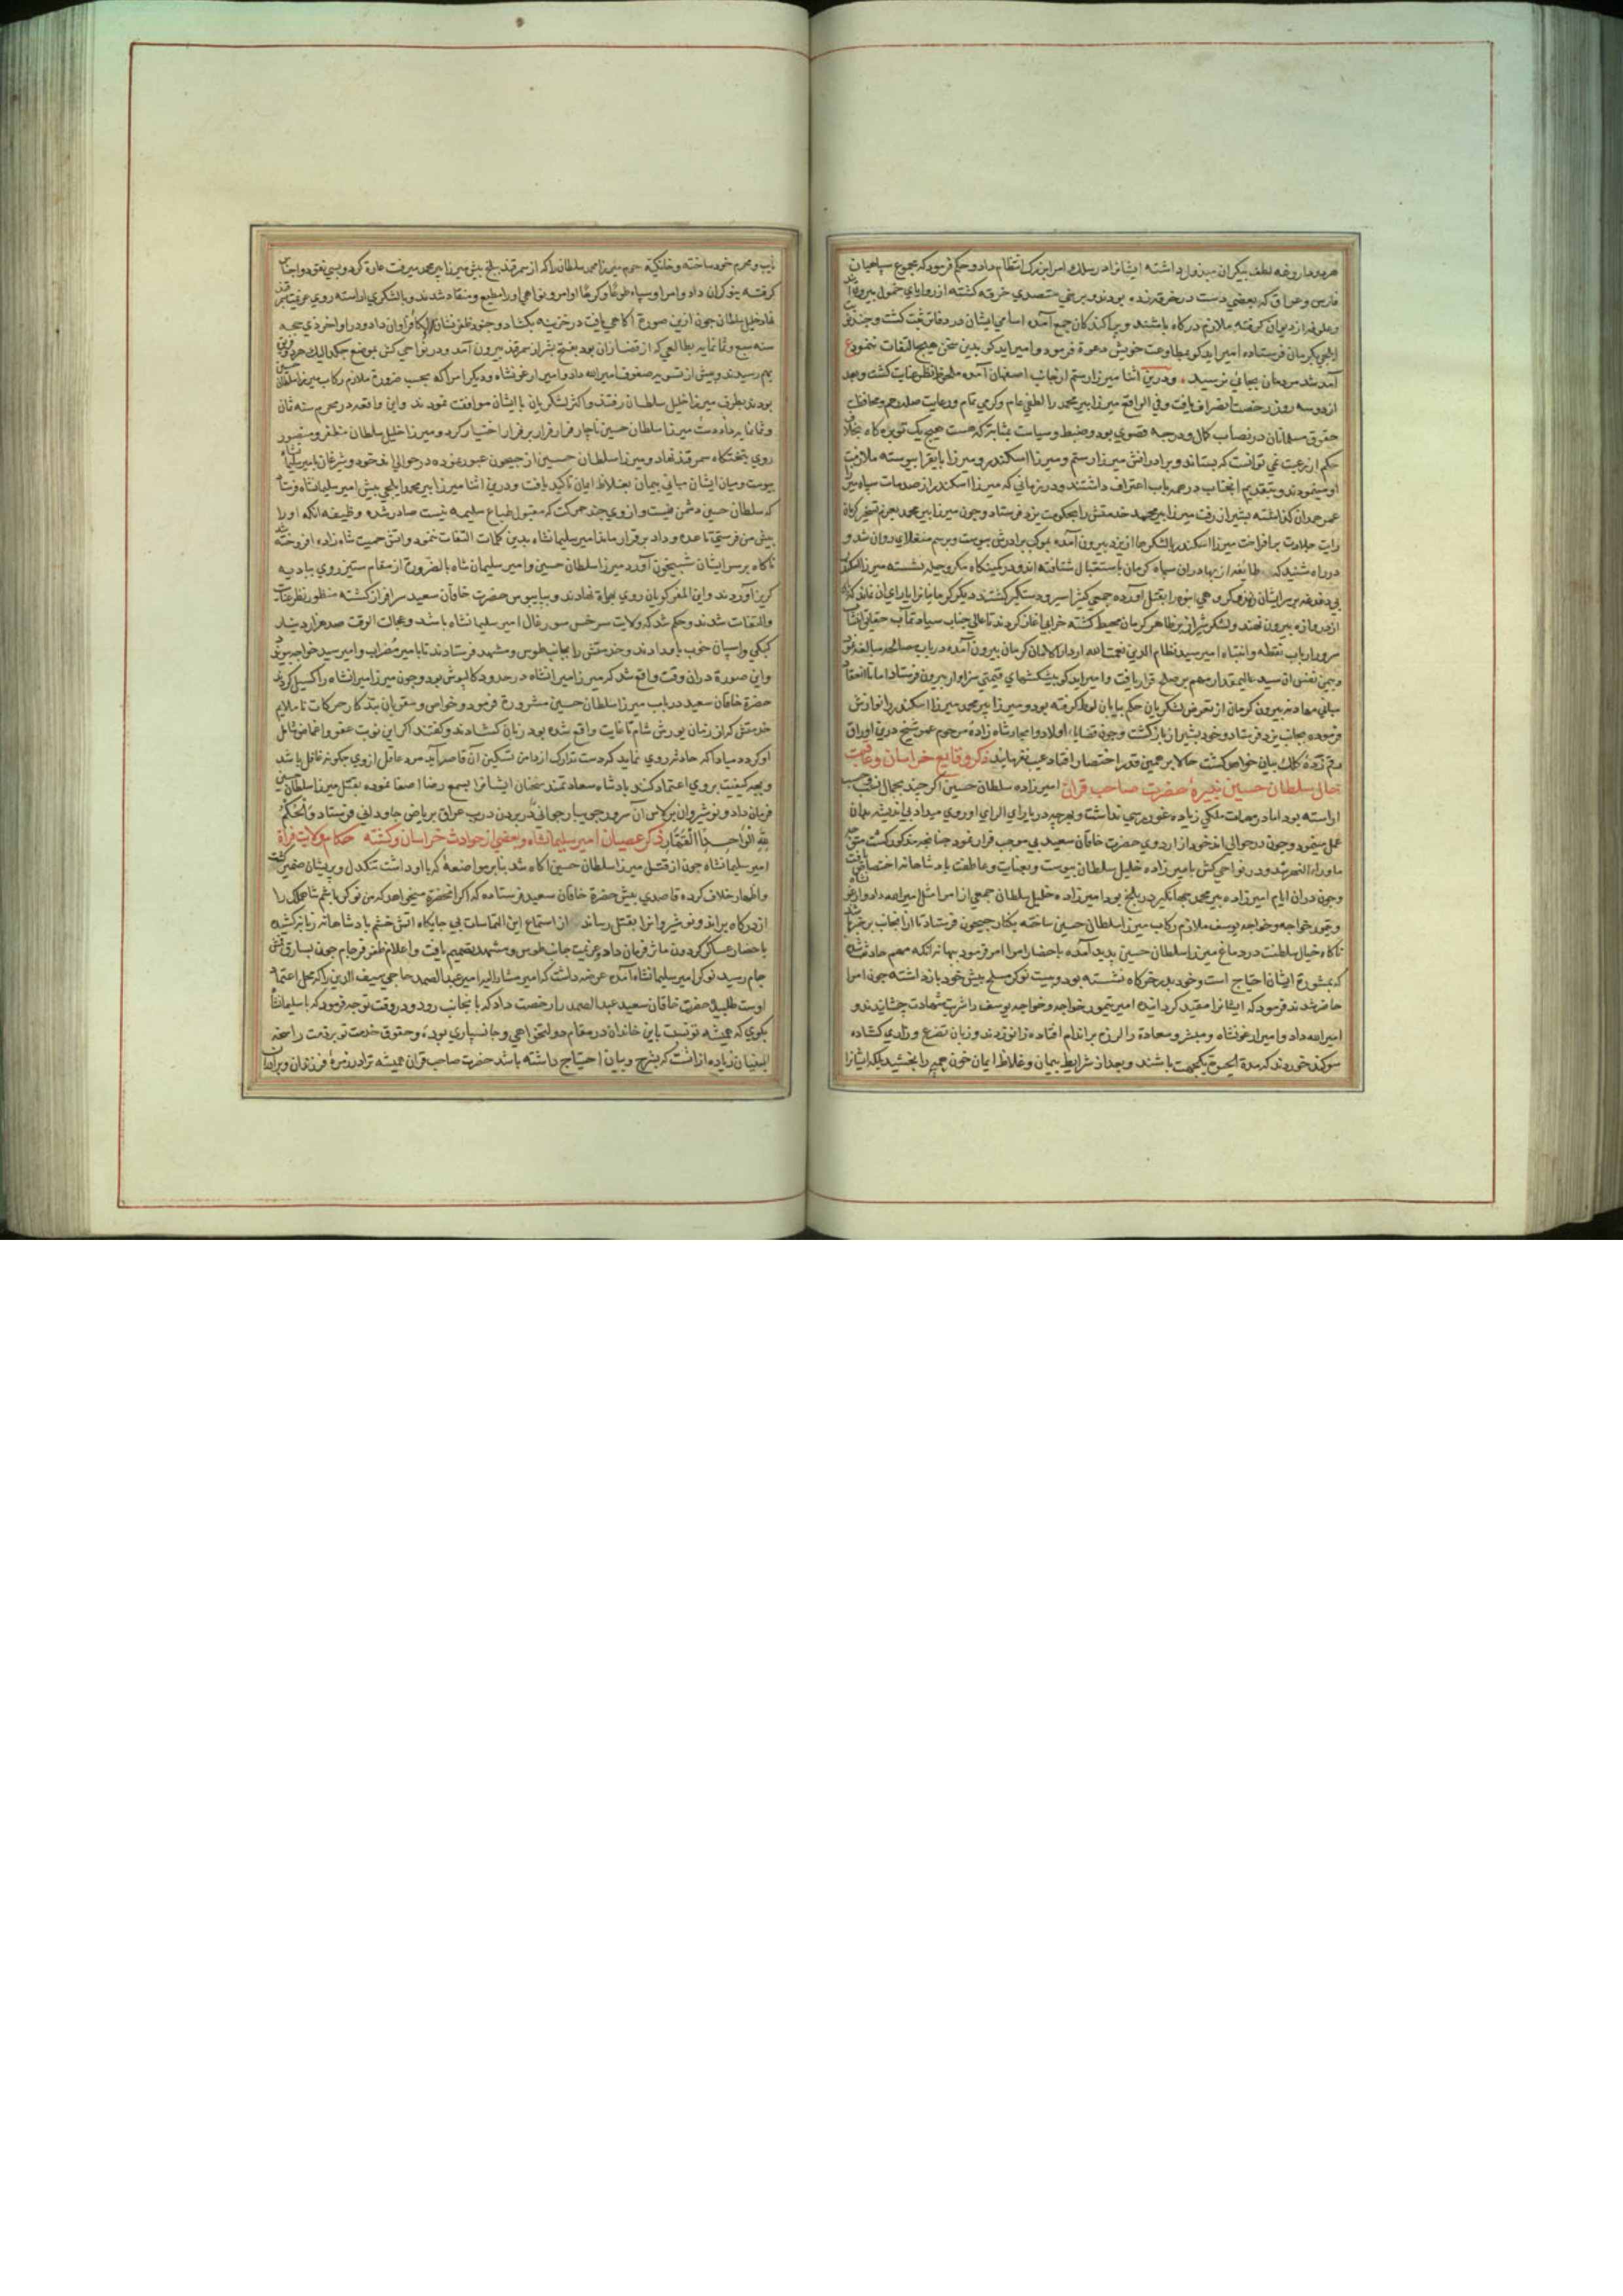 فارس و عراق که بعضی دست در خرقه زده بودند و برخی متصدی خرقه کشته از زوایای خمول بیرون
و علوفه از دیوان کرفته ملازم درکاه باشند و پراکندکان جمع آمده اسامی ایشان در دفاتر ثبت کشت و چند
ایلچی بکرمان فرستاده امیر ایدکو بمطاوعت خویش دعوة فرمود و امیر ایدکو بدین سخن هیچ التفات ننمود
آمد شد مردمان بجائی نرسید ودرین اثنا میرزا رستم از جانب اصفهان آمده ملحوظ نظر عنایت کشت و بعد
از دو سه روز رخصت انصراف یافت و فی الواقع میرزا پیر محمد را لطفی عام و کرمی تمام و رعایت صله رحم و محافظت
حقوق مسلمانان در نصاب کمال و درجه قصوی بود و ضبط و سیاست بمثابتی که هست هیچ یک توبره کاه
حکم از رعیت نمی توانست که بستاند و برادرانش میرزا رستم و میرزا اسکندر و میرزا بایقرا پیوسته ملازمت
او مینمودند و بتقدیم آنجناب در همه باب اعتراف داشتند و در زمانی که میرزا اسکندر از صدمات سپاه میرزا
عمر همدان کذاشته بشیراز رفت میرزا پیر محمد خدمتش را بحکومت یزد فرستاد و چون میرزا پیر محمد بعزم تسخیر کرمان
رایت جلادت برافراخت میرزا اسکندر با لشکرها از یزد بیرون آمده بموکب برادرش پیوست و برسم منغلای روان شد و
در راه شنید که طایفه از بهادران سپاه کرمان باستقبال شتافته اند و در کمینکاه مکر و حیله نشسته میرزا اسکندر
از دروازه بیرون نهند و لشکر شیراز بر ظاهر کرمان محیط کشته خرابی آغاز کردند تا عالی جناب سیادت مآب
سرور ارباب تقطه و انتباه امیر سید نظام الدین نعمت الله از دار الامان کرمان بیرون آمده در باب صلح مبالغه
و بیمن نفس آن سید عالیمقدار مهم بر صلح قرار یافت و امیر ایدکو پیشکشهای قیمتی سزاوار بیرون فرستاد
فرموده بجانب یزد فرستاد و خود بشیراز باز کشت و چون قضایا اولاد و امجاد شاه زاده مرحوم عمر شیخ درین اوراق
رقم زده کلک بیان خواهد کشت حالا بر همین قدر اختصار افتاد ذکر وقایع خراسان و عاقبت
حال سلطان حسین نبیره حضرت صاحب قران امیر زاده سلطان حسین اکر چند بجمال
آراسته بود اما در مهمات ملکی زیاده غوررسی نداشت و هرچه در بادی الرای او روی میداد بی اندیشه بدان
عمل مینمود و چون در حوالی اندخود از اردوی حضرت خاقان سعید بی موجب فرار نمود چنانچه مذکور کشت
ماوراء النهر شد و در نواحی کش بامیر زاده خلیل سلطان پیوست و بعنایت و عاطفت پادشاهانه اختصاص
و چون دران ایام امیر زاده پیر محمد جهانکیر در بلخ بود امیر زاده خلیل سلطان جمعی از امرا مثل امیر الله داد و ارغو
و تیمور خواجه و خواجه یوسف ملازم رکاب میرزا سلطان حسین ساخته بکنار جیحون فرستاد تا از آنجانب بر خبر
ناکاه خیال سلطنت در دماغ میرزا سلطان حسین پدید آمده باحضار امرا امر فرمود بهانه آنکه مهم حادث شده
که بمشورة ایشان احتیاج است و خود بدر خرکاه نشسته بود و بیست نوکر مسلح پیش خود بازداشته چون امرا
حاضر شدند فرمود که ایشانرا مقید کردانیده امیر تیمور خواجه و خواجه یوسف را شربت شهادت چشانیدند و
امیر الله داد و امیر ارغونشاه و مبشر و سعاده را لرزه بر اندام افتاده زانو زدند و زبان تضرع و زاری کشاده
سوکند خوردند که مدة الحیوة یکجهت باشند و بعد از شرایط پیمان و غلاظ ایمان خون همه را بخشید بلکه ایشانرا
نایب و محرم خود ساخته و خانیکه حرم میرزا محمد سلطان را که از سمرقند ببلخ پیش میرزا پیر محمد میرفت غارة کرد و بسی نقود و اجناس
کرفته بنوکران داد و امرا و سپاه طوعا و کرها اوامر و نواهی او را مطیع و منقاد شدند و با لشکری آراسته روی عزیمت
نهاد خلیل سلطان چون ازین صورة آکاهی یافت در خزینه بکشاد و جنود ظفر نشان را اولکای فراوان داد و در اواخر ذی حجه
سنه سبع و ثمانمایه بطالعی که از قضا زان بود بفتح بشر از سمرقند بیرون آمد و در نواحی کش بموضع جکدالیک هر دو
بهم رسیدند و پیش از تسویه صفوف امیر الله داد و امیر ارغونشاه و دیکر امرا که بحسب ضرورة ملازم رکاب میرزا سلطان
بودند بطرف میرزا خلیل سلطان رفتند و اکثر لشکریان با ایشان موافقت نمودند و این واقعه در محرم سنه ثمان
و ثمانمایه دست داد میرزا سلطان حسین ناچار فرار بر قرار اختیار کرد و میرزا خلیل سلطان مظفر و منصور
روی بتختکاه سمرقند نهاد و میرزا سلطان حسین از جیحون عبور نموده در حوالی اندخود و شبرغان بامیر
پیوست و میان ایشان مبانی پیمان بغلاظ ایمان تاکید یافت و درین اثنا میرزا پیر محمد ایلچی پیش امیر سلیمانشاه فرستاد
که سلطان حسین دشمن منست و از وی چند حرکت که مقبول طباع سلیمه نیست صادر شده وظیفه آنکه او را
پیش من فرستی تا عده و داد بر قرار ماند امیر سلیمانشاه بدین کلمات التفات ننمود و آتش حمیت شاه زاده افروخته
ناکاه بر سر ایشان شبیخون آورد میرزا سلطان حسین و امیر سلیمان شاه بالضرورة از مقام ستیز روی ببادیه
کریز آوردند و این المفر کویان روی بهراة نهادند و بپایبوس حضرت خاقان سعید سرافراز کشته منظور نظر عنایت
و التفات شدند و حکم شد که ولایت سرخس سورغال امیر سلیمانشاه باشد و عجالت الوقت صد هزار دینار
کبکی و اسپان خوب باو دادند و خدمتش را بجانب طوس و مشهد فرستادند تا با امیر مضراب و امیر سید خواجه
و این صورة دران وقت واقع شد که میرزا امیرانشاه در حدود کالپوش بود و چون میرزا امیرانشاه را کسیل کردند
حضرة خاقان سعید در باب میرزا سلطان حسین مشورة فرمود و خواص و مقربان بتذکار حرکات ناملایم
خدمتش که از زمان یورش شام تا غایت واقع شده بود زبان کشادند و کفتند اکر این نوبت عفو و اغماض شامل
او کردد مبادا که حادثه روی نماید که دست تدارک از دامن تسکین آن قاصر آید مرد عاقل از وی چکونه غافل باشد
و بچه کیفیت بر وی اعتماد کند پادشاه سعادتمند سخنان ایشانرا بسمع رضا اصغا نموده بقتل میرزا سلطان
فرمان داد و نوشیروان برلاس آن سرو جویبار جوانی را در بردن درب عراق بریاض جاودانی فرستاد
ذکر عصیان امیر سلیمانشاه و بعضی از حوادث خراسان و کشته حکام ولایت فراه
امیر سلیمانشاه چون از قتل میرزا سلطان حسین آکاه شد بنابر مواضعه که با او داشت تنکدل و پریشان ضمیر
و اظهار خلاف کرده قاصدی پیش حضرة خاقان سعید فرستاده که اکر انحضرة میخواهد که من نوکر باشم شاهملک را
از درکاه براند و نوشیروانرا بقتل رساند از استماع این التماسات بی جایکاه آتش خشم پادشاهانه زبانه کشیده
باحضار عساکر کردون ماثر فرمان داد و عزیمت جانب طوس و مشهد تصمیم یافت و اعلام ظفر فرجام چون بسارق
جام رسید نوکر امیر سلیمانشاه آمده عرضه داشت که امیر مشار الیه امیر عبد الصمد حاجی سیف الدین را که محل اعتماد
اوست طلبیده حضرت خاقان سعید عبد الصمد را رخصت داد که بانجانب رود و در وقت توجه فرمود که با سلیمانشاه
بکوی که همیشه تو نسبت باین خاندان در مقام دولتخواهی و جانسپاری بوده و حقوق خدمت تو بر ذمت
زیاده از آنست که بشرح و بیان احتیاج داشته باشد حضرت صاحب قران همیشه ترا در زمره فرزندان